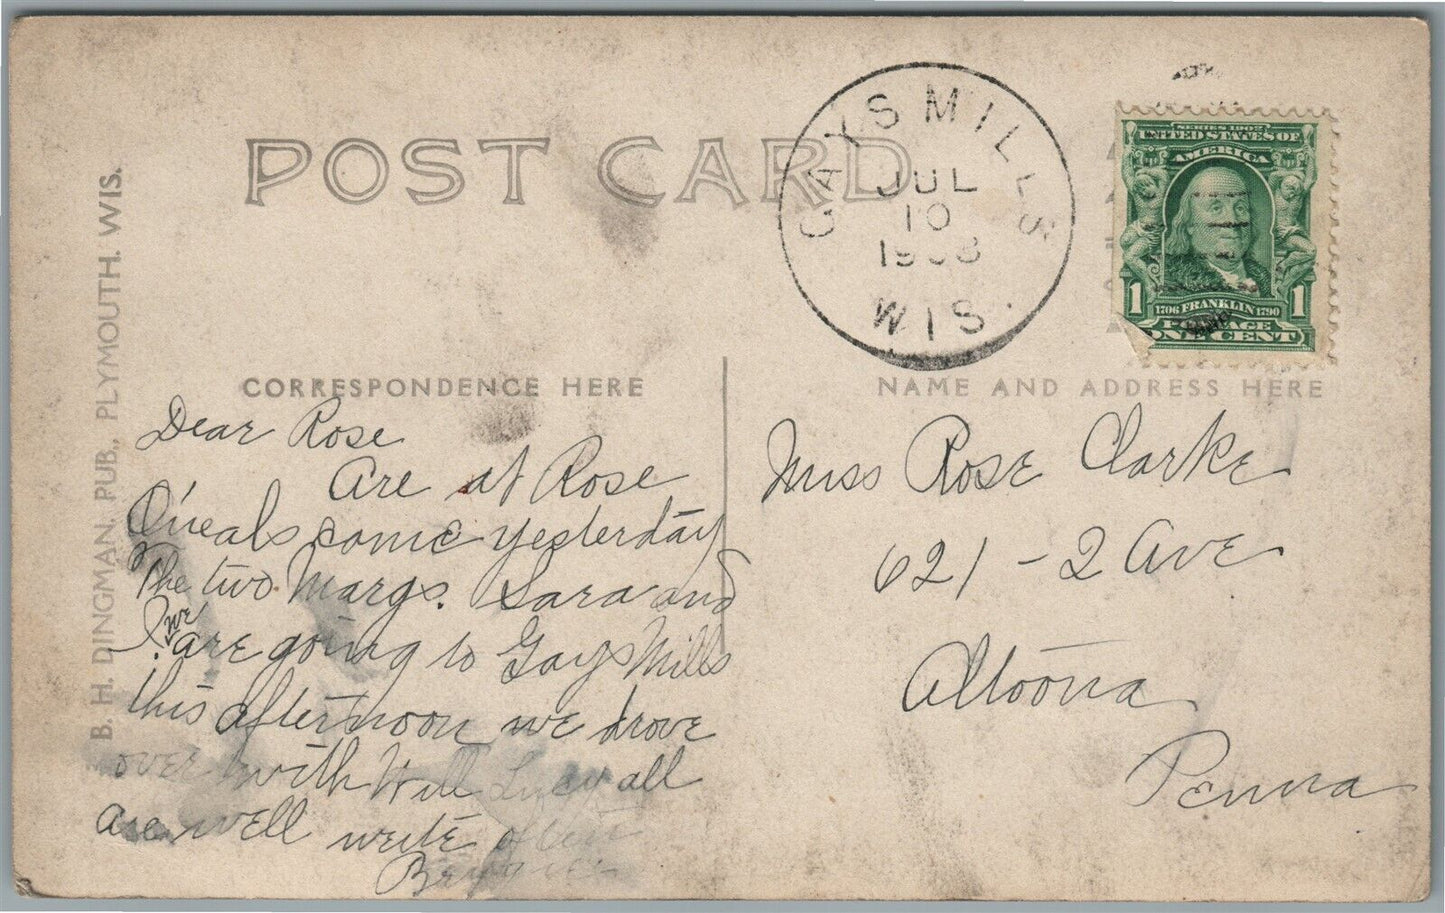 POST CARD
GAYS MILLS
JUL
10
1908
WIS.
SERIES 1902
UNITED STATES OF
AMERICA
1 1706 FRANKLIN 1790 1
POSTAGE
ONE CENT
B. H. DINGMAN, PUB., PLYMOUTH, WIS.
CORRESPONDENCE HERE
Dear Rose
Are at Rose
O'neals came yesterday
The two Margs. Sara and
I. we are going to Gays Mills
this afternoon we drove
over with Will Lucy all
are well write often
NAME AND ADDRESS HERE
Miss Rose Clarke
621 - 2 Ave
Altoona
Penna